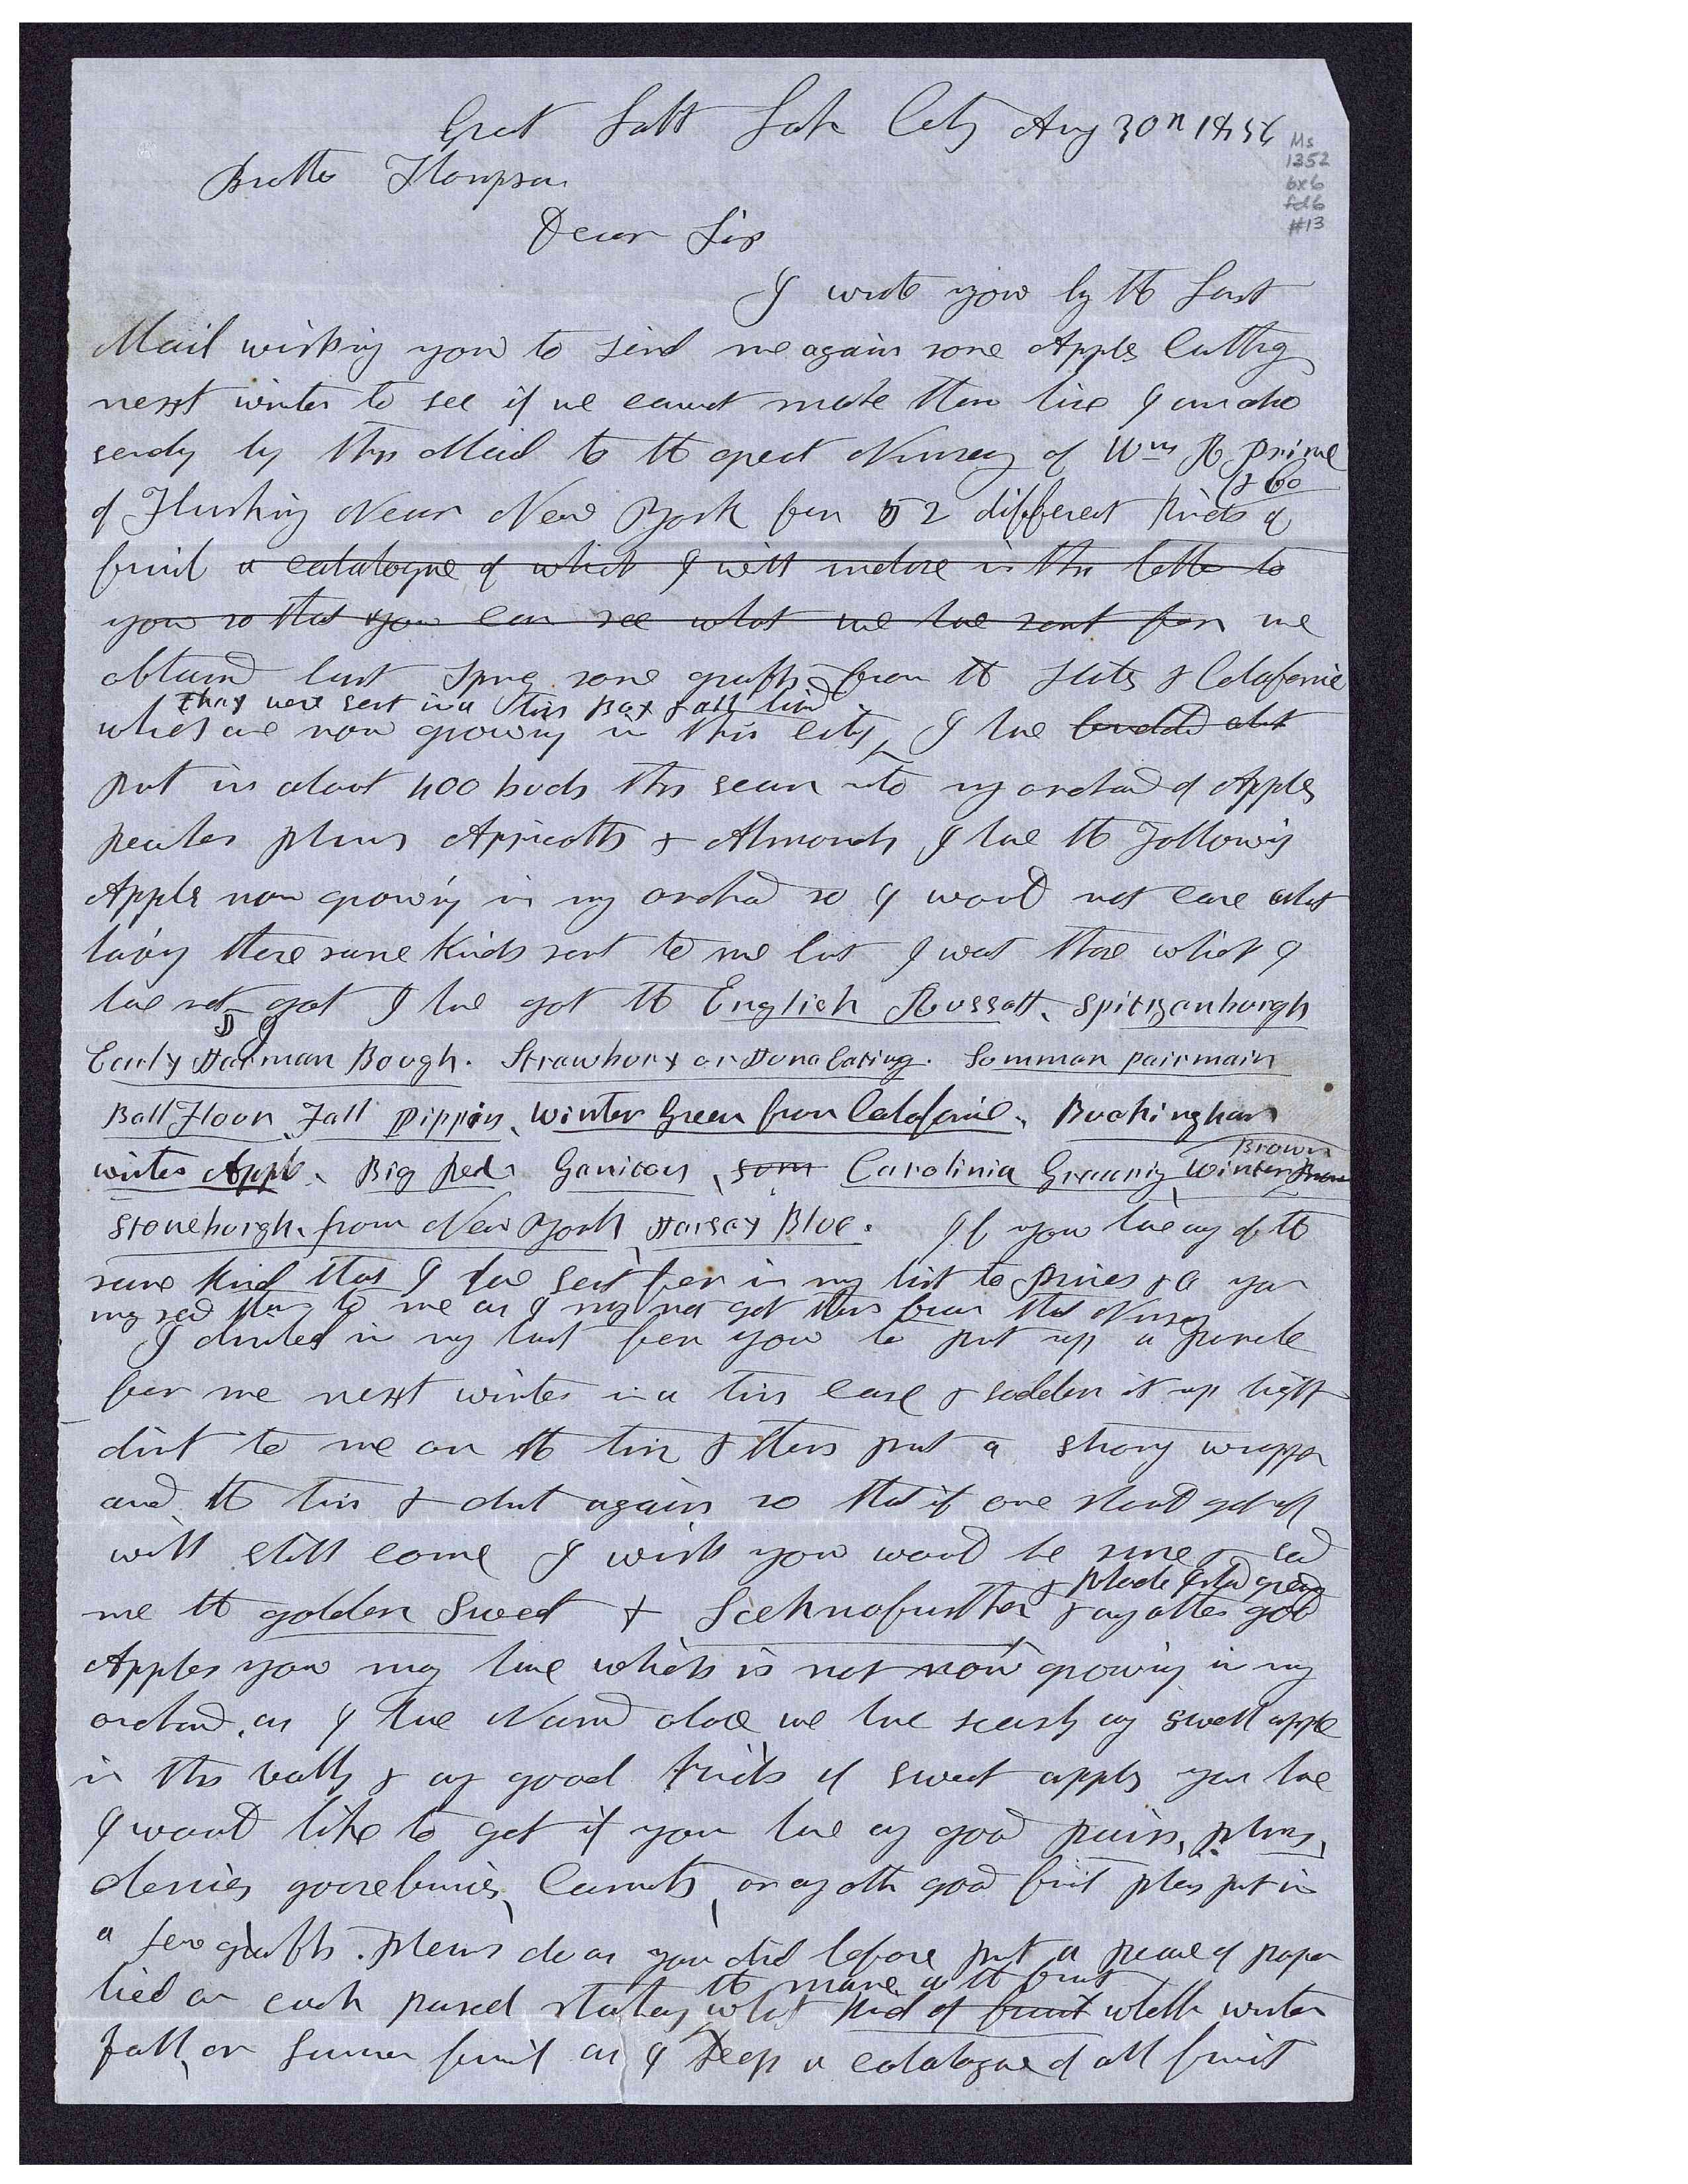 Great Salt Lake City Aug 30th 1856
Ms
1352
bx6
fd6
#13
Brother Thompson
Dear Sir
I wrote you by the last
Mail wishing you to send me again some Apple Cutting
next winter to see if we cannot make them live I am also
sendg by this Mail to the great Nursery of Wm R Prince
& Co
of Flushing Near New York for 52 different kinds of
fruit a catalogue of which I will inclose in this letter to
you so that you can see what we have sent for we
obtained last Spring some grafts from the States & Calafornia
that were sent in a tin Box & all lived
which are now growing in this city, I have budded about
put in about 400 buds this season into my orchard of Apples
peaches plums Appricotts & Almonds I have the Following
Apples now growing in my orchard so I would not care about
having these same kinds sent to me but I want those which I
have not got I have got the English Russett, Spitzenburgh
Early Harman Bough. Strawbery or Hona Eating. Sommar pairmain
Bell Floor, Fall Pippin, Winter Green from Calafornia, Buckingham
Brown
winter Apple, Big Red, Ganicon, som Carolinia Greening, Winter Brown
Stoneburgh, from New York, Harsey Blue. If you have any of the
same kind that I have sent for in my list to Princes & Co you
may send them to me as I may not get them from that Nursery
I directed in my last for you to put up a parcele
for me next winter in a tin case & sodder it up tight
dirct to me on the tin & then put a strong wrapper
around the tin & dirct again so that if one should get off
will still come I wish you would be sure & send
me the golden Sweet & Seeknofurther & any other good
& Rhode Island greening
Apples you may have which is not now growing in my
orchard, as I have Named above we have scarcly any sweet apple
in this vally & any good kinds of sweet apples you have
I would like to get if you have any good pairs, plums,
cherries gooseburies, Currants, or any other good fruit pleas put in
a few grafts. pleas do as you did before put a peace of paper
tied on each parcel stating what kind of fruit whether winter
the name of the fruit
fall, or Summer fruit as I keep a catalogue of all fruit